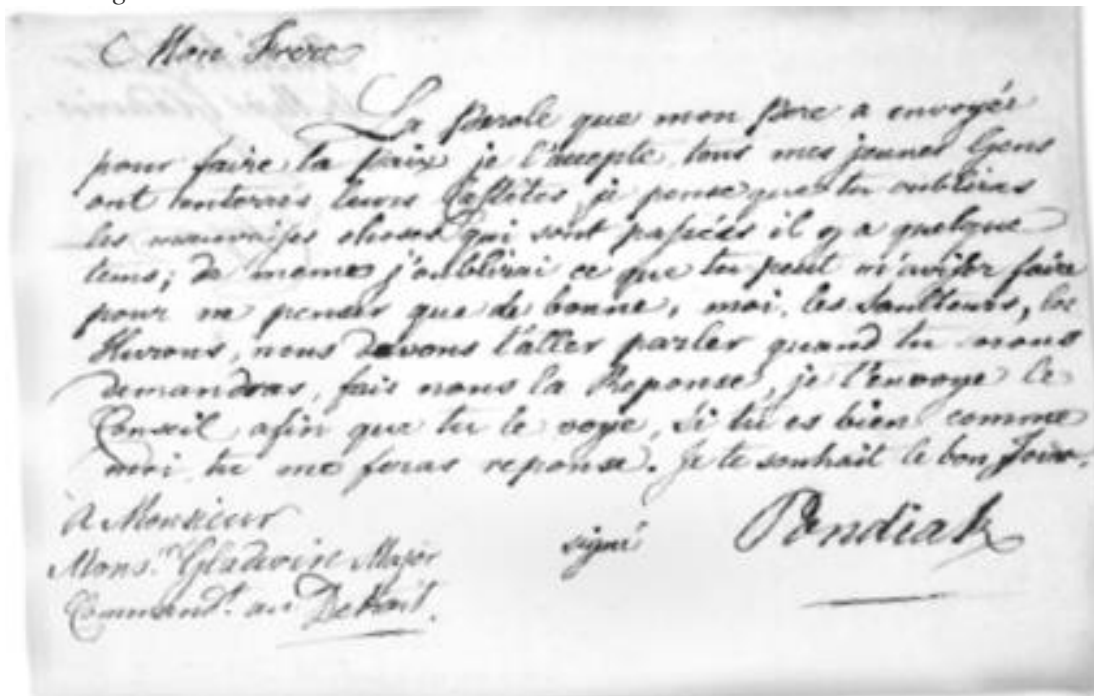 Mon Frere
La Parole que mon Pere a envoyée
pour faire la Paix je l'accepte, tous mes jeunes Gens
ont enterrés leurs Cassetêtes, je pense que tu oublieras
les mauvaises choses qui sont passées il y a quelque
tems; de meme j'oublirai ce que tu peut m'avoir faire
pour ne penser que de bonne, moi, les Saulteurs, les
Hurons, nous devons t'aller parler quand tu nous
demandras, fais nous la Reponse, je t'envoye le
Conseil afin que tu le voye, Si tu es bien comme
moi, tu me feras reponse. Je te souhait le bon Jour.
à Monsieur
Mons.r Gladwin Major
signé Pondiak
Command.t au Detroit.